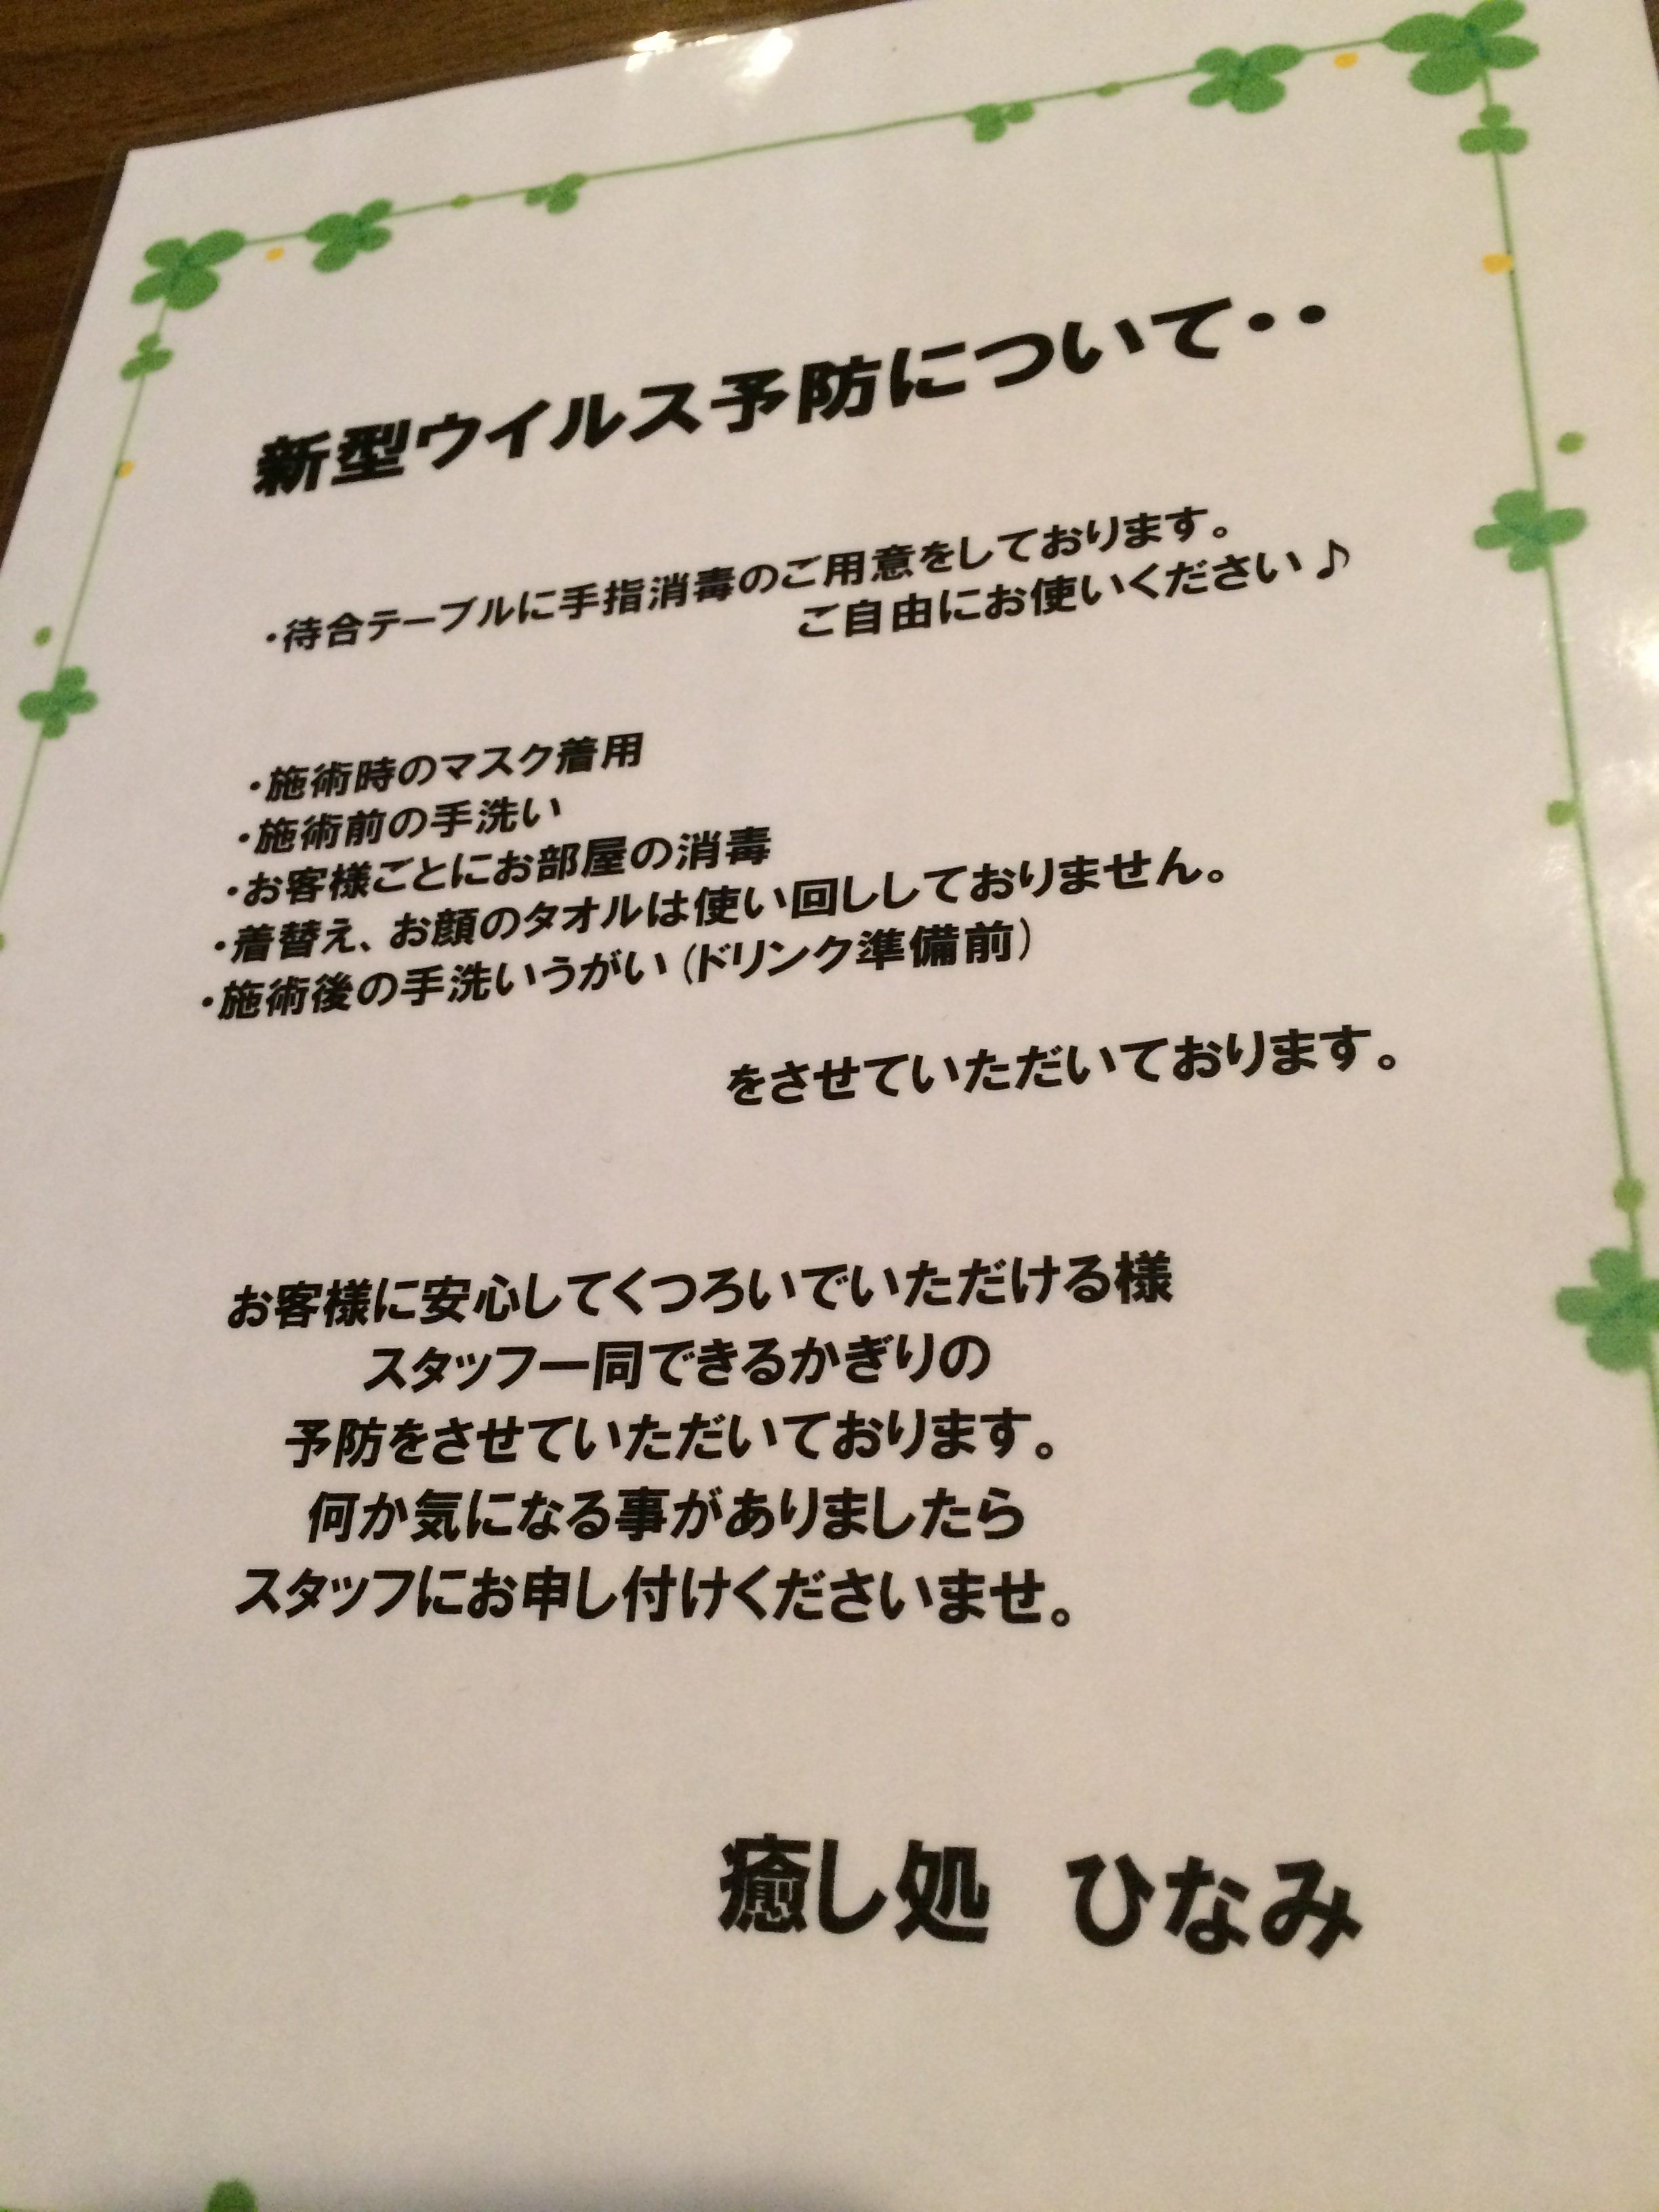 新型ウイルス予防について・・
・待合テーブルに手指消毒のご用意をしております。
ご自由にお使いください♪
・施術時のマスク着用
・施術前の手洗い
・お客様ごとにお部屋の消毒
・着替え、お顔のタオルは使い回ししておりません。
・施術後の手洗いうがい(ドリンク準備前)
をさせていただいております。
お客様に安心してくつろいでいただける様
スタッフ一同できるかぎりの
予防をさせていただいております。
何か気になる事がありましたら
スタッフにお申し付けくださいませ。
癒し処　ひなみ